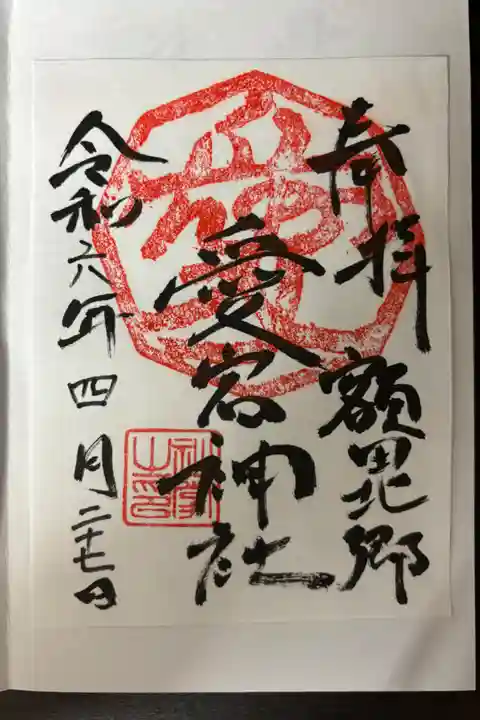 奉拝
額田郷
愛宕神社
令和六年四月二十七日
愛